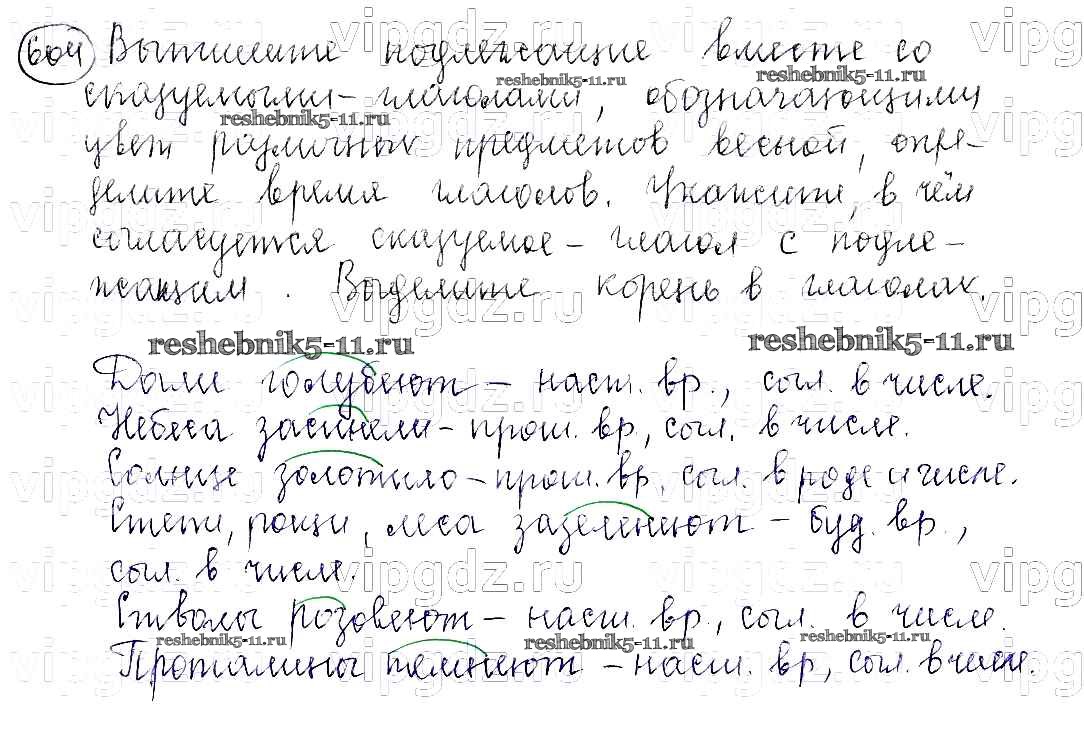 604 Выпишите подлежащие вместе со
сказуемыми-глаголами, обозначающими
цвет различных предметов весной, опре-
делите время глаголов. Укажите, в чём
согласуется сказуемое - глагол с подле-
жащим. Выделите корень в глаголах.
reshebnik5-11.ru reshebnik5-11.ru
Дали голубеют - наст. вр., согл. в числе.
Небеса засинели - прош. вр, согл. в числе.
Солнце золотило - прош. вр, согл. в роде и числе.
Степи, рощи, леса зазеленеют - буд. вр.,
согл. в числе.
Стволы розовеют - наст. вр., согл. в числе.
reshebnik5-11.ru reshebnik5-11.ru reshebnik5-11.ru
Проталины темнеют - наст. вр, согл. в числе.